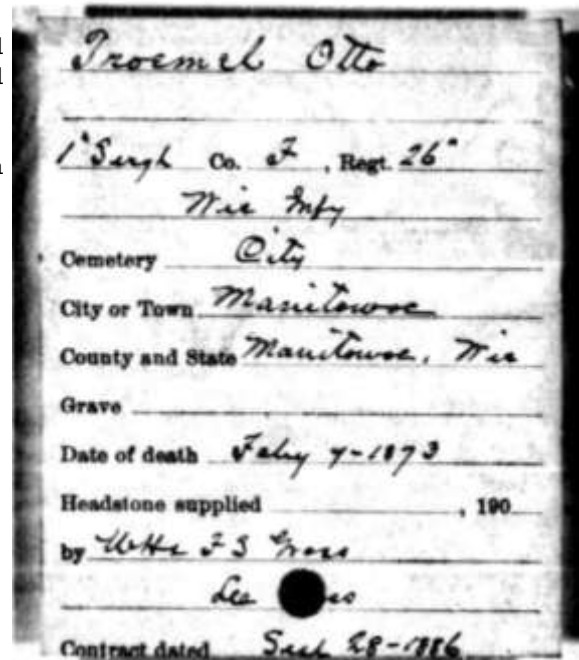 Troemel Otto
1" Sergt Co. F, Regt. 26"
Wis Infy
Cemetery City
City or Town Manitowoc
County and State Manitowoc, Wis
Grave
Date of death Feby 7-1873
Headstone supplied , 190
by
Lee
Contract dated 28-1886